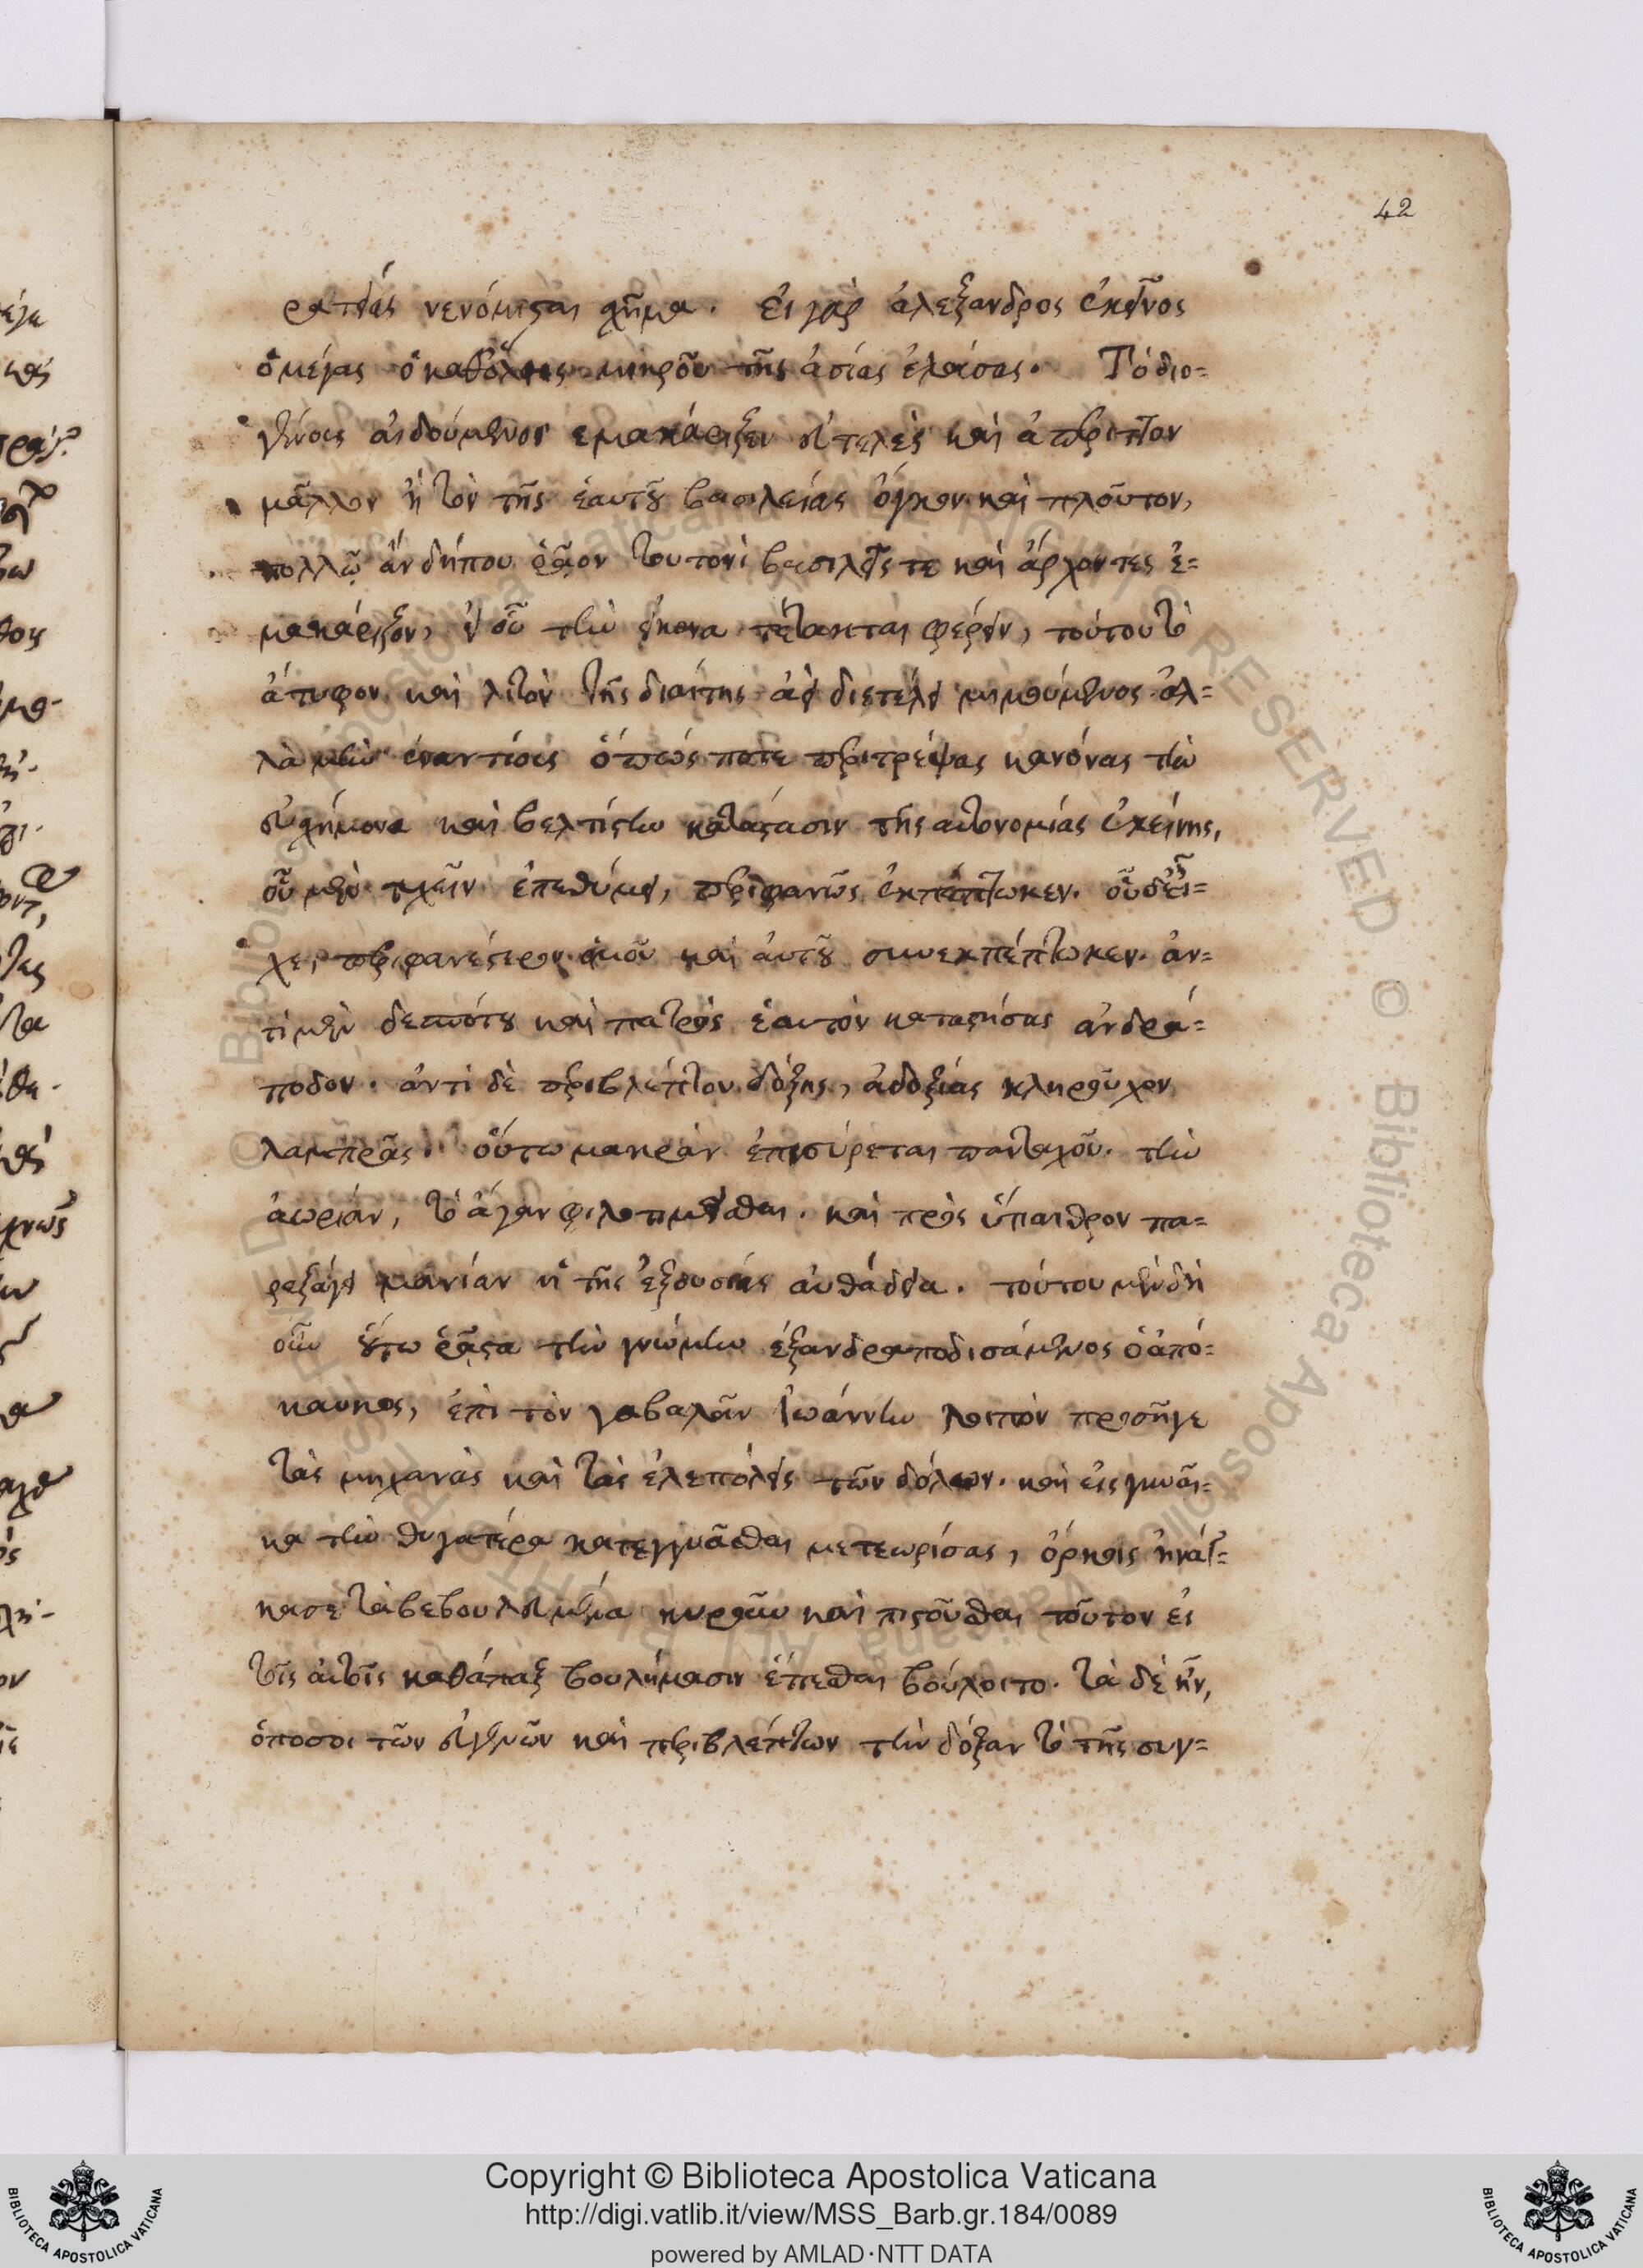 42
ρατείας νενόμισται χρῆμα. εἰ γὰρ ἀλέξανδρος ἐκεῖνος
ὁ μέγας ὁ καθόλης μικροῦ τῆς ἀσίας ἐλάσας. Τὸ διο=
γένους αἰδούμενος ἐμακάριζεν εὐτελὲς καὶ ἀπέριττον
μᾶλλον ἢ τὸν τῆς ἑαυτοῦ βασιλείας ὄγκον καὶ πλοῦτον,
πολλῷ ἂν δήπου ῥᾷον τουτονὶ βασιλεῖς τε καὶ ἄρχοντες ἐ=
μακάριζον, εἰ οὗ τὴν εἰκόνα τέτακται φέρειν, τούτου τὸ
ἄτυφον καὶ λιτὸν τῆς διαίτης ἀεὶ διετέλει μιμούμενος. ἀλ=
λὰ νῦν ἐναντίοις ὅπως ποτε περιτρέψας κανόνας τὴν
εὐσχήμονα καὶ βελτίστην κατάστασιν τῆς αὐτονομίας ἐκείνης,
οὗ μὲν τυχεῖν ἐπεθύμει, περιφανῶς ἐκπέπτωκεν. οὗ δ' εἶ=
χε, περιφανέστερον ὁμοῦ καὶ αὐτοῦ συνεκπέπτωκεν. ἀν=
τὶ μὲν δεσπότου καὶ πατρὸς ἑαυτὸν καταστήσας ἀνδρά=
ποδον. ἀντὶ δὲ περιβλέπτου δόξης, ἀδοξίας κληροῦχον
λαμπρᾶς. οὕτω μακρὰν ἐπισύρεται πανταχοῦ τὴν
ἀωρίαν, τὸ ἄγαν φιλοτιμεῖσθαι. καὶ πρὸς ὕπαιθρον πα=
ρεξάγει μανίαν ἡ τῆς ἐξουσίας αὐθάδεια. τούτου μὲν δὴ
οὖν οὕτω ῥᾷστα τὴν γνώμην ἐξανδραποδισάμενος ὁ ἀπό=
καυκος, ἐπὶ τὸν γαβαλᾶν Ἰωάννην λοιπὸν προσῆγε
τὰς μηχανὰς καὶ τὰς ἑλεπόλεις τῶν δόλων. καὶ εἰς γυναῖ=
κα τὴν θυγατέρα κατεγγυᾶσθαι μετεωρίσας, ὅρκοις ἠνάγ=
κασε τὰ βεβουλευμένα κυροῦν καὶ πιστοῦσθαι τοῦτον εἰ
τοῖς αὐτοῖς καθάπαξ βουλήμασιν ἕπεσθαι βούλοιτο. τὰ δὲ ἦν,
ὁπόσοι τῶν εὐγενῶν καὶ περιβλέπτων τὴν δόξαν τὸ τῆς συγ=
Copyright © Biblioteca Apostolica Vaticana
http://digi.vatlib.it/view/MSS_Barb.gr.184/0089
powered by AMLAD·NTT DATA